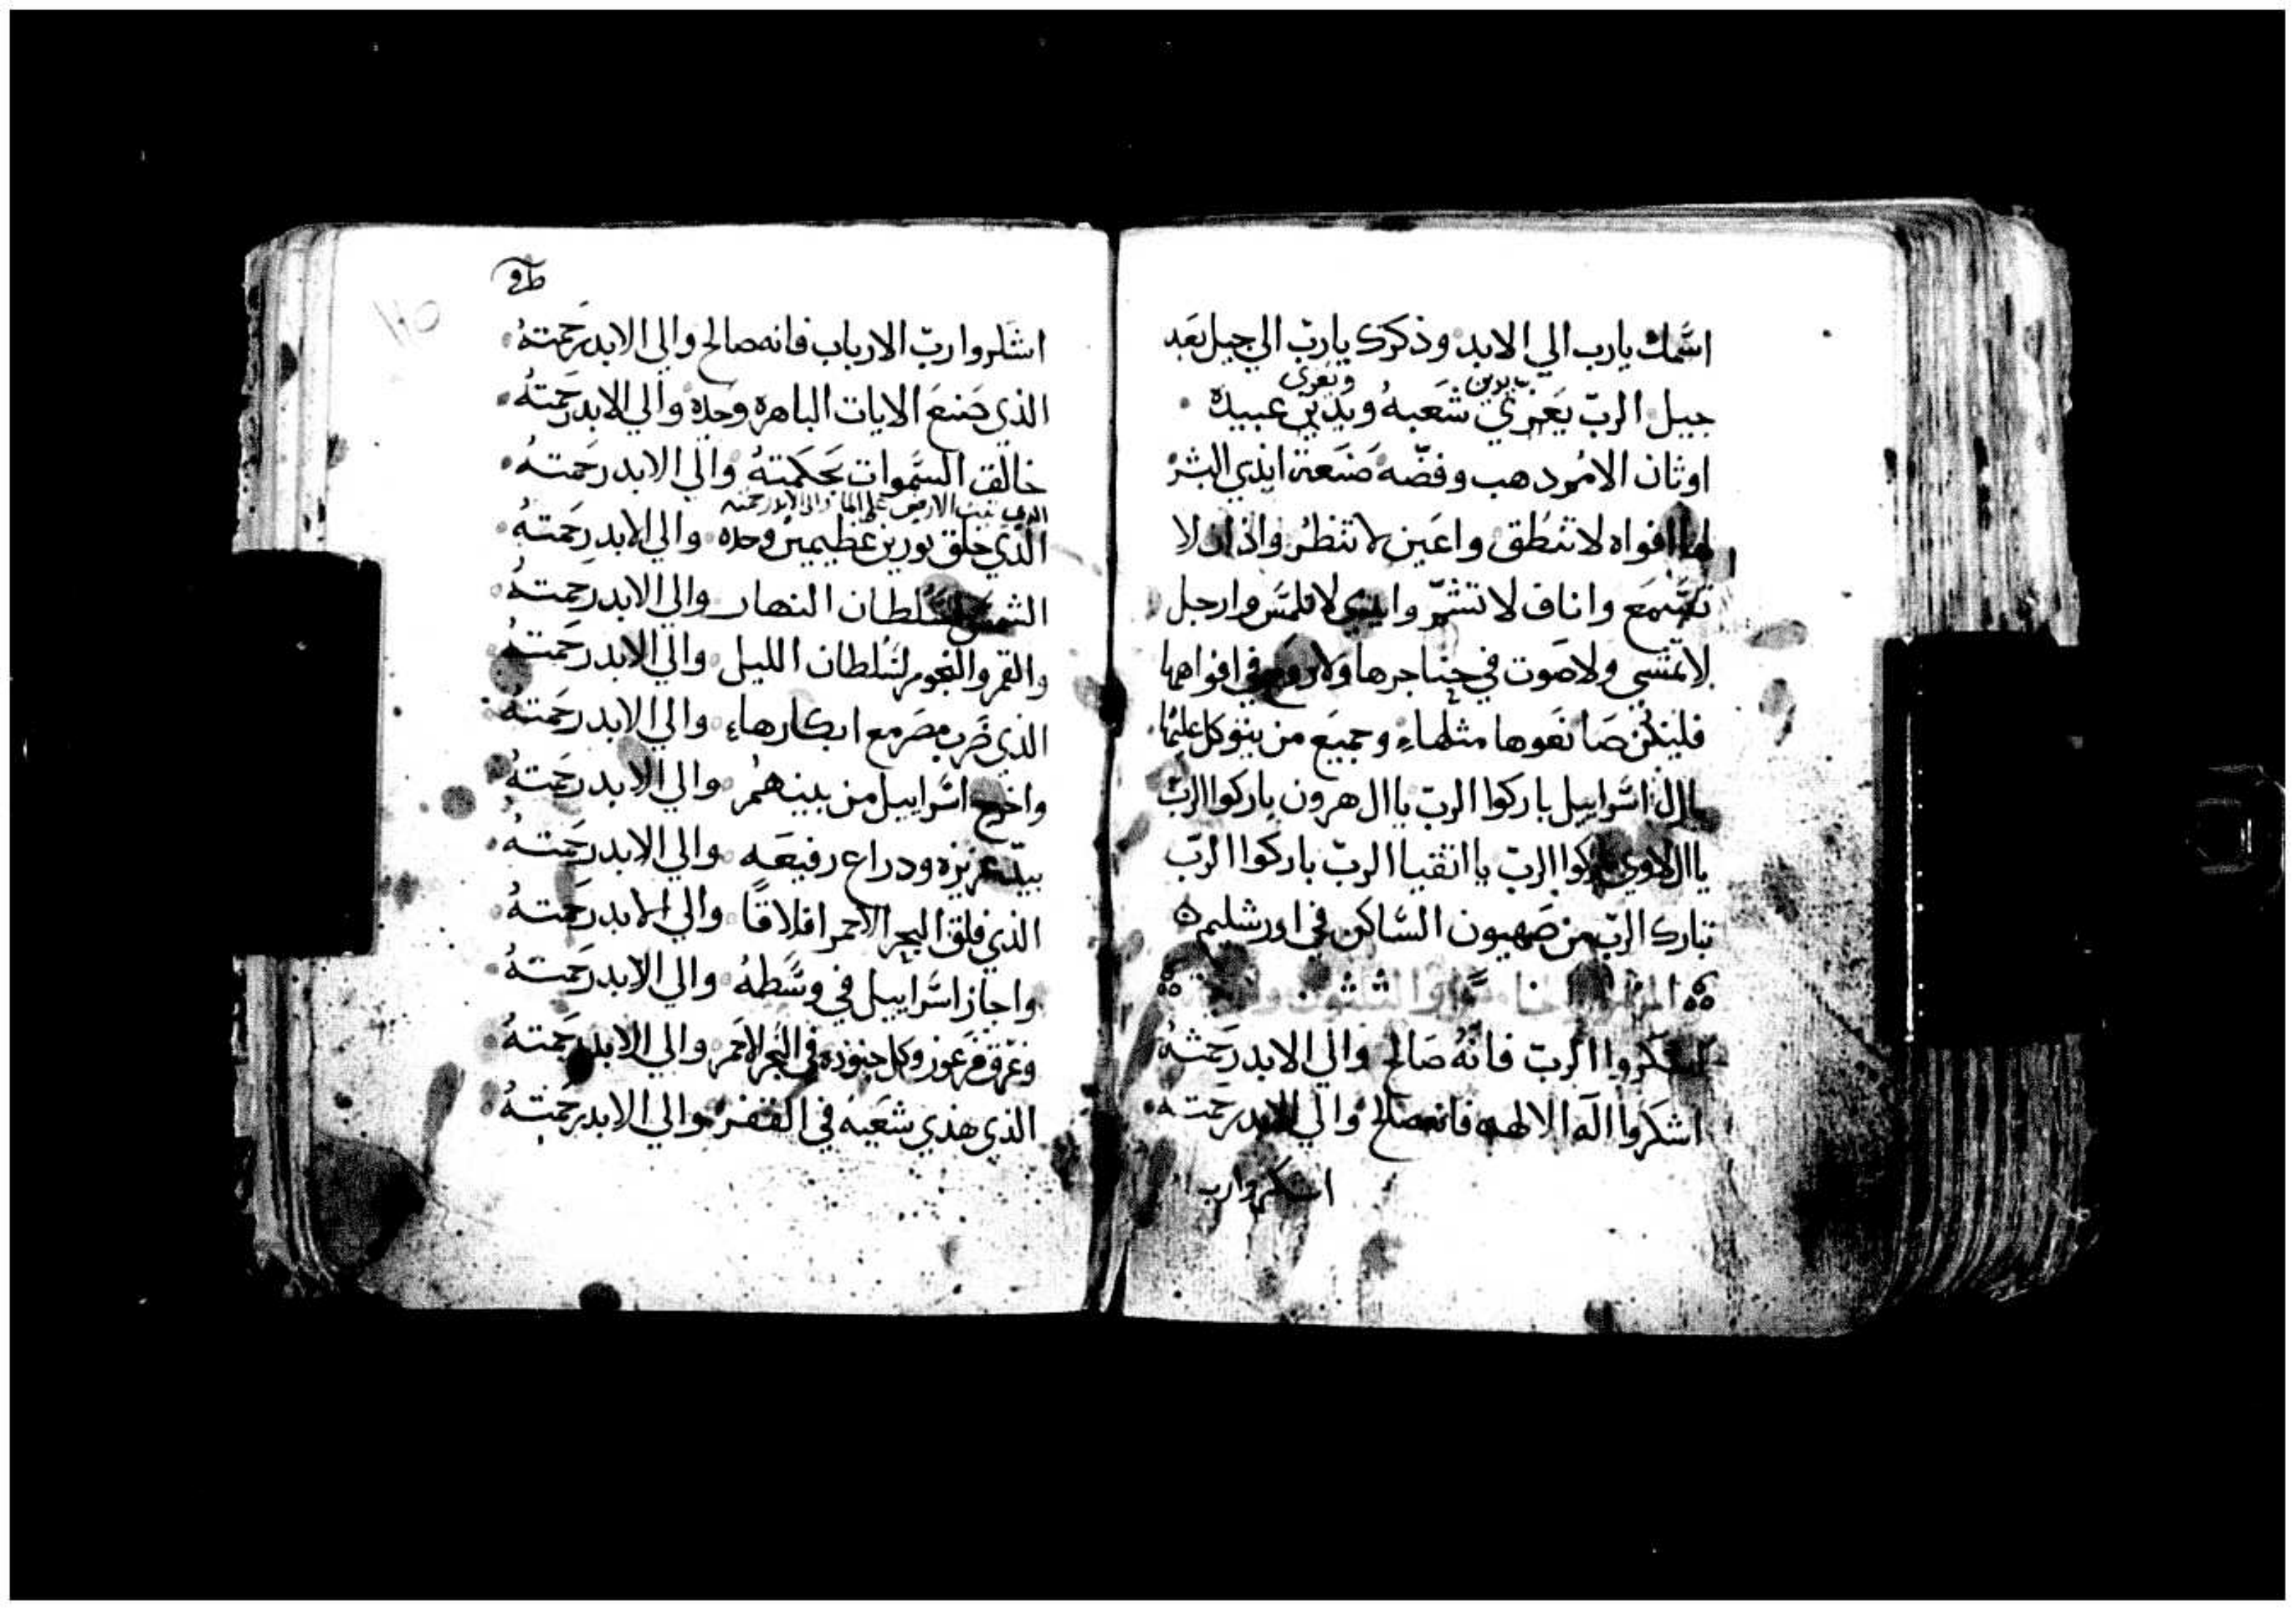 اسَّمك يارب الي الابد وذكرك يارب الي جيل بعَد
يدين ويعزي
جيل الربّ يَعزي شَعبهُ ويدين عبيده
اوثان الامُم دهب وفضّه صَنعة ايدي البشر
لها افواه لاتنطق واعَين لاتنظر واذان لا
تسَّمَع واناف لاتشمّ وايدي لاتلمسَّ وارجل
لاتمشي ولاصَوت في حناجرها ولاروح في افواهها
فليكن صَانعَوها مثلهاء وجميَع من يتوكل عليها
ياال اسَّراييل باركوا الربّ ياال هرون باركوا الربّ
ياال لاوي باركوا الربّ ياانقيا الربّ باركوا الربّ
تبارك الربّ من صَهيون السَّاكن في اورشليم
المزمور الخامسَّ والثلثون و
اشكروا الربّ فانهُ صَالح والي الابد رَحمتهُ
اشكروا اله الالهه فانه صَالح والي الابد رحمته
اشكروا رب
اشكروا ربّ الارباب فانه صالح والي الابد رَحمتهُ
الذي صَنعَ الايات الباهره وَحده والي الابد رَحمتهُ
خالق السَّموات بحَكمتهُ والي الابد رحَمتهُ
الذي ثبت الارض علي الما والي الابد رحمته
الذي خلق نورين عَظيمين وحده والي الابد رحَمتهُ
الشمسَّ لسَّلطان النهار والي الابد رحَمتهُ
والقمر والنجوم لسَّلطان الليل والي الابد رحَمتهُ
الذي ضَرب مصَر مع ابكارهاء والي الابد رحَمتهُ
واخرج اسَّراييل من بينهمُ والي الابد رحَمتهُ
بيد عَزيزه ودراع رفيعَه والي الابد رحَمتهُ
الذي فلق البحر الاحمر افلاقًا والي الابد رحَمتهُ
واجاز اسَّراييل في وسَّطهُ والي الابد رحَمتهُ
وغرّق فرعَون وكل جنوده في البحر الاحمَر والي الابد رحَمتهُ
الذي هدي شَعبهُ في القفر والي الابد رحَمتهُ